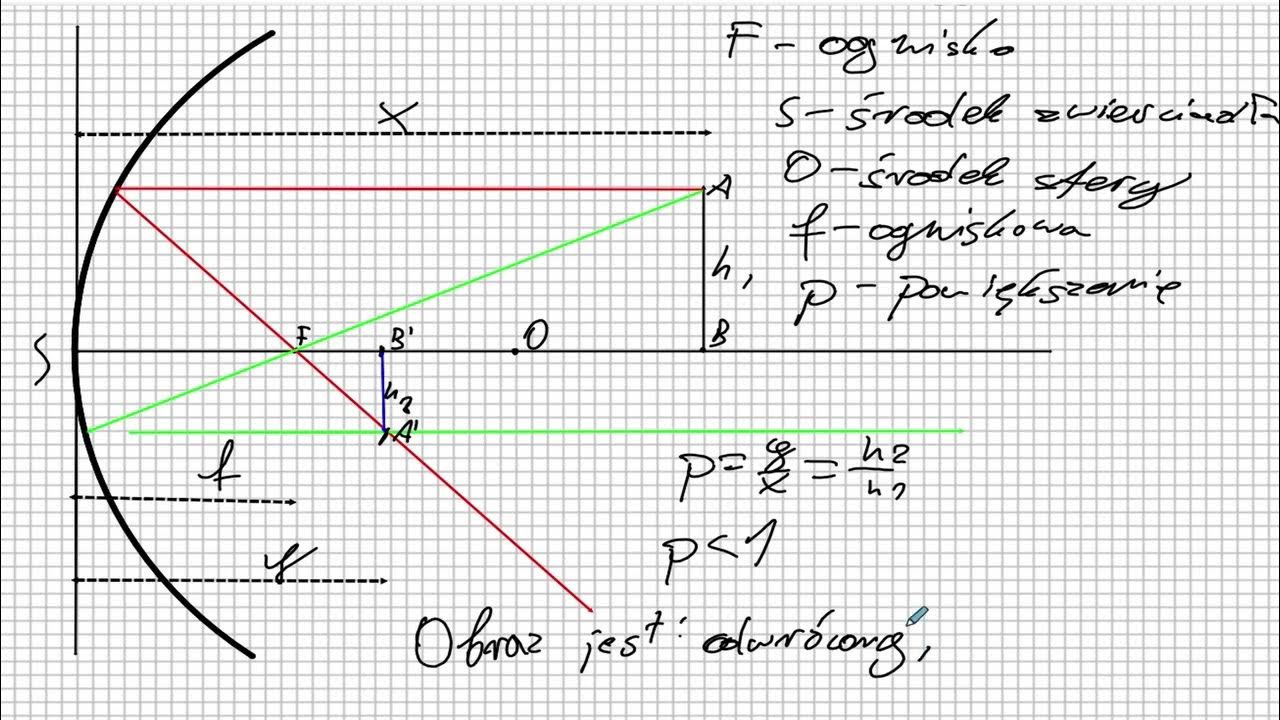 F - ognisko
S - środek zwierciadła
O - środek sfery
f - ogniskowa
p - powiększenie
x
A
h,
B
S
F
B'
O
h2
A'
f
y
p = y/x = h2/h1
p < 1
Obraz jest: odwrócony,